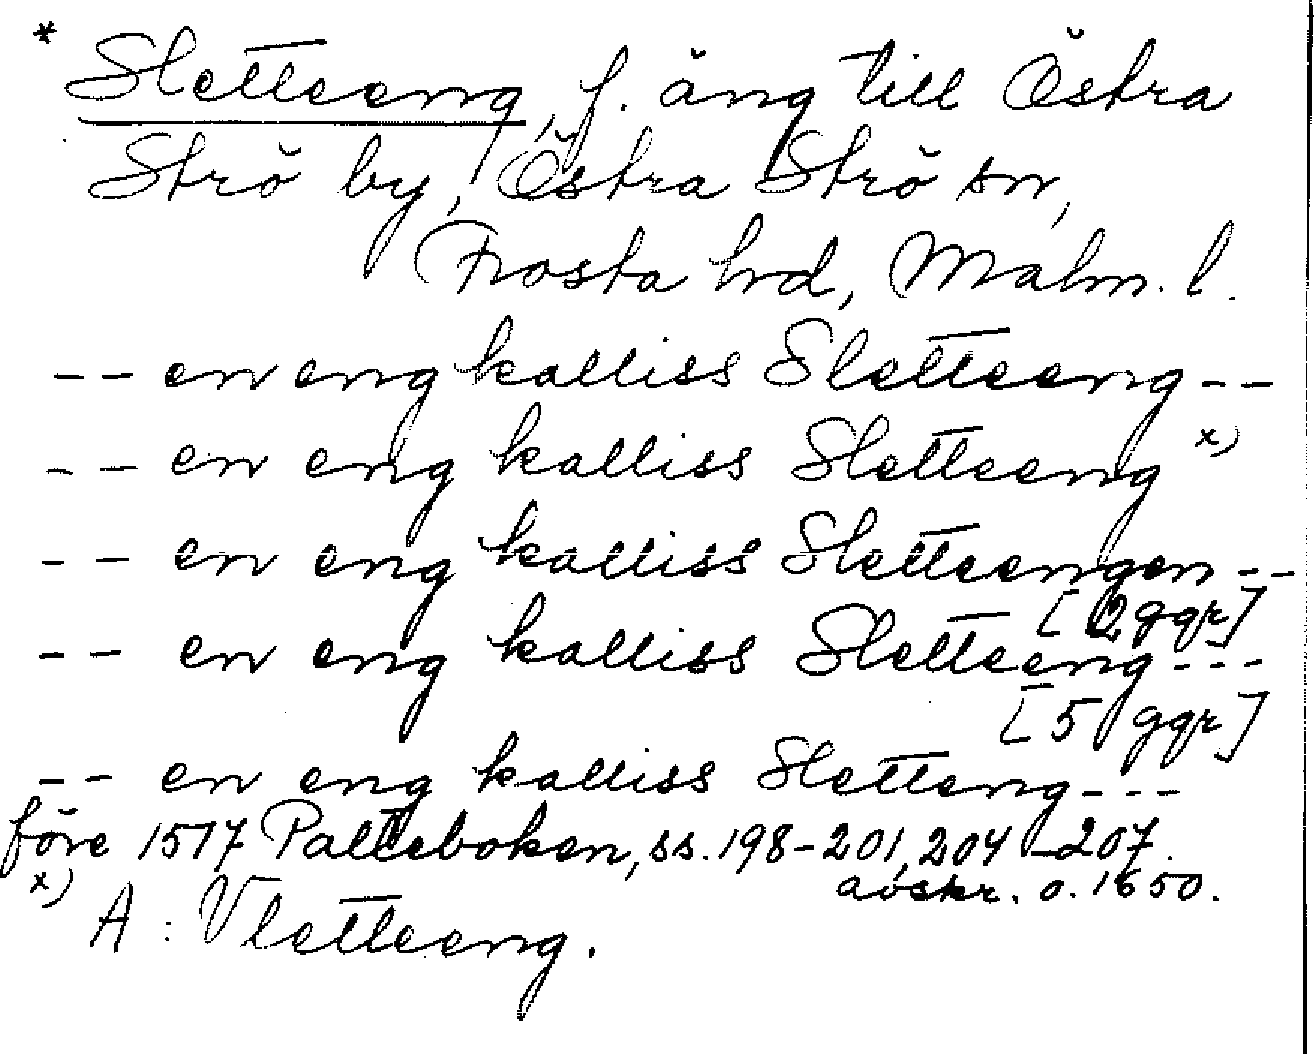 * Sletteeng, f. äng till Östra
Strö by, Östra Strö sn,
Frosta hd, Malm. l.
-- en eng kalliss Sletteeng --
-- en eng kalliss Sletteeng x)
-- en eng kalliss Sletteengen --
[2 ggr]
-- en eng kalliss Sletteeng ---
[5 ggr]
-- en eng kalliss Sletteng ---
före 1517 Palteboken, ss. 198-201, 204-207.
avskr. o. 1650.
x) A: Vletteeng.